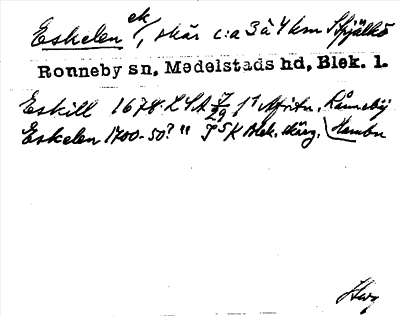 Eskelen ek/, skär c:a 3 à 4 km S Spjälkö
Ronneby sn, Medelstads hd, Blek. l.
Eskill 1678. LSA 7/29 Ronneby
Eskelen 1700-50? " JSK Blek. skärg. Hambn